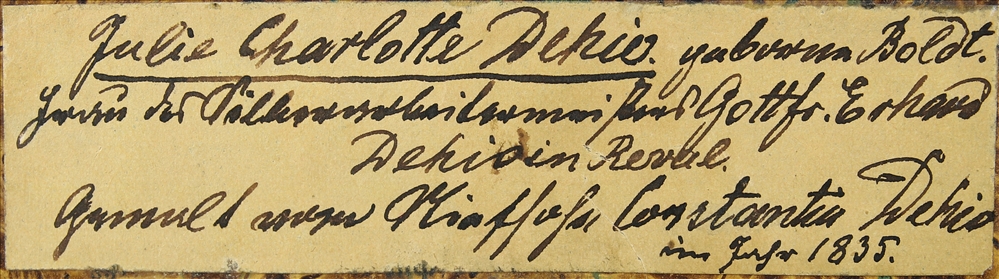 Julie Charlotte Dehio. geborene Boldt.
Frau des Silberarbeitermeisters Gottfr. Erhard
Dehio in Reval.
Gemalt vom Stiefsohn Constantin Dehio
im Jahr 1835.